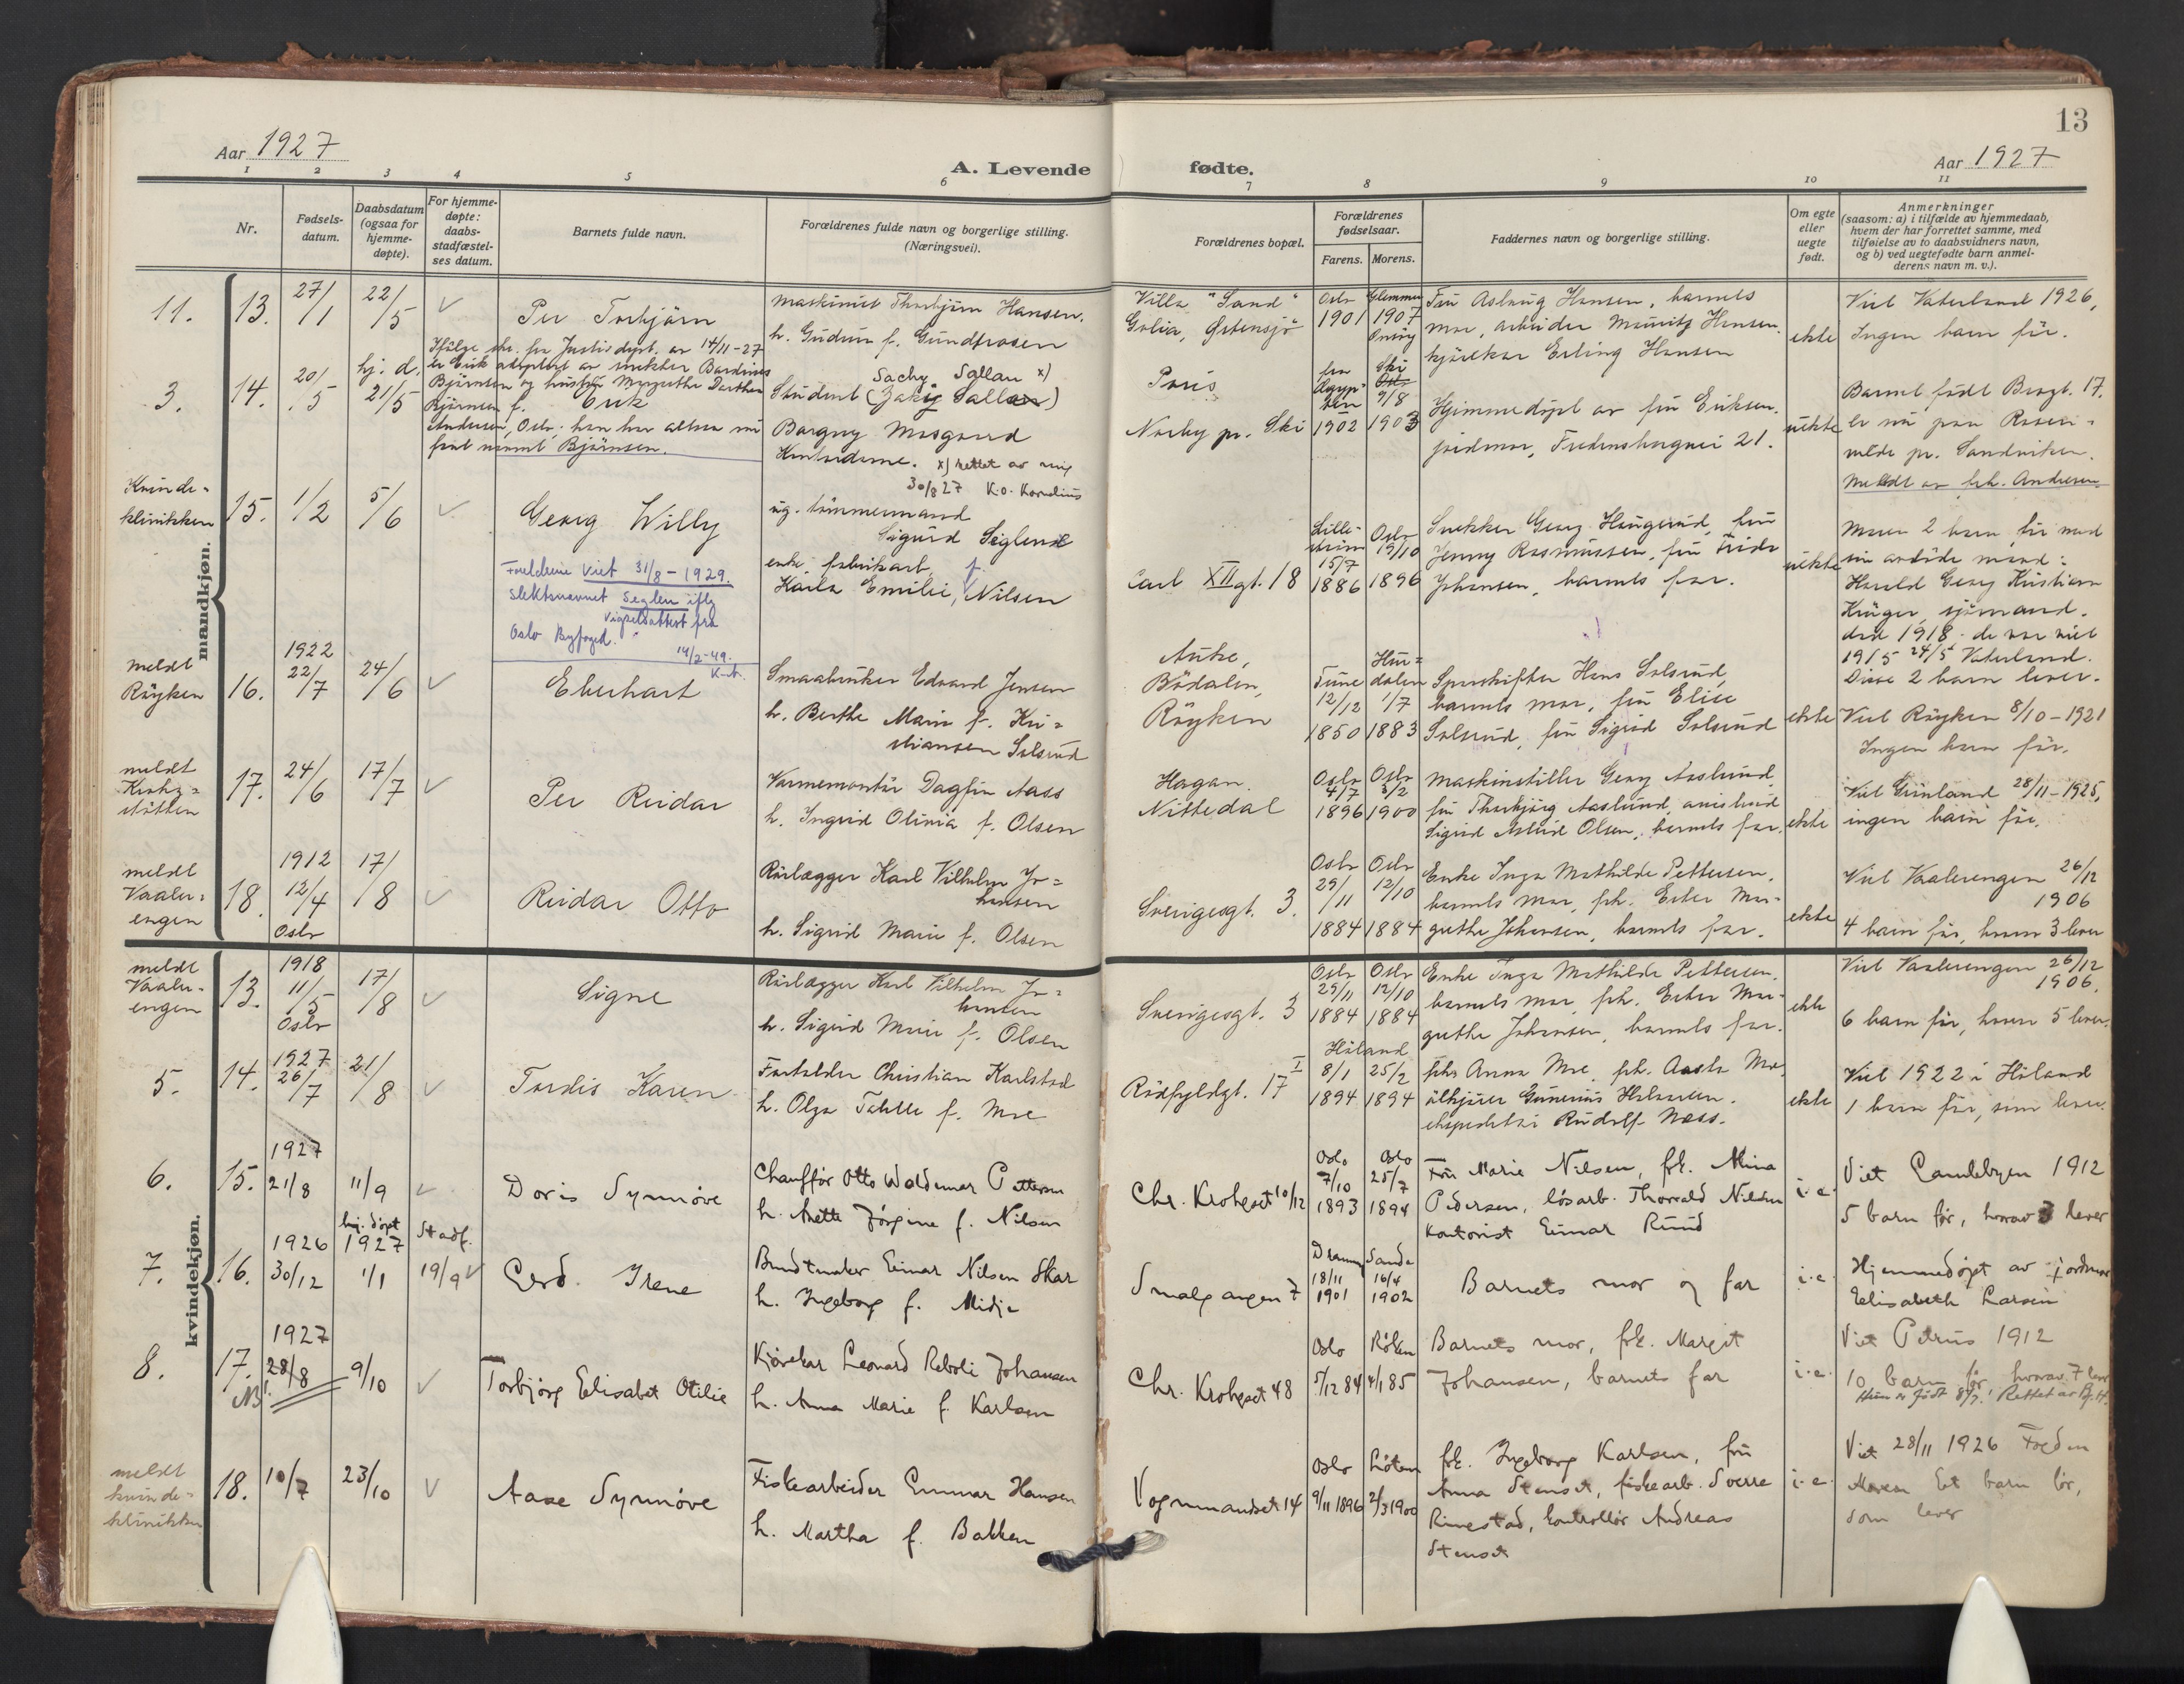 13
Aar 1927
A. Levende fødte.
Aar 1927
1 2 3 4 5 6 7 8 9 10 11
Nr.
Fødsels-
datum.
Daabsdatum
(ogsaa for
hjemme-
døpte).
For hjemme-
døpte:
daabs-
stadfæstel-
ses datum.
Barnets fulde navn.
Forældrenes fulde navn og borgerlige stilling.
(Næringsvei).
Forældrenes bopæl.
Forældrenes
fødselsaar.
Farens. Morens.
Faddernes navn og borgerlige stilling.
Om egte
eller
uegte
født.
Anmerkninger
(saasom: a) i tilfælde av hjemmedaab,
hvem der har forrettet samme, med
tilføielse av to daabsvidners navn,
og b) ved uegtefødte barn anmel-
derens navn m. v.).
mandkjøn.
11. 13. 27/1 22/5 ✓
Per Torbjörn
Maskinist Thorbjörn Hansen.
h. Gudrun f. Gundrosen
Villa "Sand"
Golia, Østensjö
Oslo 1901
Glemmen 1907
Onsöy
Fru Aslaug Hansen, barnets
mor, arbeider Mauritz Hansen,
kjörekar Erling Hansen
ekte
Viet Vaterland 1926,
Ingen barn för.
3. 14. 20/5 hj. d. 21/5
Ifölge skr. fra Justisdept. av 14/11-27
er Erik adoptert av snekker
Björnsen og hustru Margrethe Dorthea
Björnsen f.
Erik
Andersen, Oslo. han har altsaa nu
faat navnet Björnsen.
Sachy Sallan x)
Student (Zaky Sallan)
Borgny Mosgaard
Kontordame. x) rettet av mig
30/8 27 K.O. Kornelius
Paris
Norby pr. Ski
fra Ægyp-
ten
1902
Ski
Oslo
9/8
1903
Hjemmedöpt av fru Eriksen.
jordmor, Fredensborgvei 21.
uekte
Barnet födt Brogt. 17.
er nu paa Rosen-
vilde pr. Sandviken.
Meldt av frk. Andresen.
Kvinde-
klinikken
15. 1/2 5/6 ✓
Georg Willy
Foreldrene viet 31/8-1929.
Slektsnavnet Seglen iflg
Vigselsattest fra
Oslo Byfoged.
14/2-49.
K.A.
ug. tömmermand
Sigurd Seglend
enke, fabrikarb.
Karla Emilie, f. Nilsen
Carl XII gt. 18
Lille-
ström
15/7
1886
Oslo
19/10
1896
Snekker Georg Haugerud, fru
Jenny Rasmussen, fru Frida
Johansen, barnets far.
uekte
Moren 2 barn för med
sin avdöde mand:
Harald Georg Kristian
Krüger, sjömand.
död 1918. de var viet
1915 24/5 Vaterland.
Disse 2 barn lever.
meldt
Röyken
16. 1922 22/7 24/6 ✓
Eberhart
Smaabruker Edvard Jensen
h. Berthe Marie f. Kri-
stiansen Solsrud
Auke,
Bödalen,
Röyken
Tune
12/12
1850
Hur-
dalen
1/7
1883
Sporskifter Hans Solsrud,
barnets mor, fru Elise
Solsrud, fru Sigrid Solsrud
ekte
Viet Röyken 8/10-1921
Ingen barn för.
meldt
17. 24/6 17/7 ✓
Per Reidar
Varmemontör Dagfin Aass
h. Ingrid Olivia f. Olsen
Hagan
Nittedal
Oslo 4/7 1896
Oslo 3/2 1900
Maskinstiller Georg Aaslund,
fru Thorbjörg Aaslund,
Sigurd Astrid Olsen, barnets far.
ekte
Viet Grönland 28/11-1925,
ingen barn för.
meldt
Vaaler-
engen
18. 1912 12/4 Oslo 17/8 ✓
Reidar Otto
Rörlægger Karl Vilhelm Jo-
hansen
h. Sigrid Marie f. Olsen
Sverigesgt. 3.
Oslo 29/11 1884
Oslo 12/10 1884
Enke Inga Mathilde Pettersen,
barnets mor, frk. Ester Mar-
grethe Johansen, barnets far.
ekte
Viet Vaalerengen 26/12
1906
4 barn för, hvorav 3 lever
kvindekjøn.
meldt
Vaaler-
engen
13. 1918 11/5 Oslo 17/8 ✓
Signe
Rörlægger Karl Vilhelm Jo-
hansen
h. Sigrid Marie f. Olsen
Sverigesgt. 3
Oslo 29/11 1884
Oslo 12/10 1884
Enke Inga Mathilde Pettersen,
barnets mor, frk. Ester Mar-
grethe Johansen, barnets far.
ekte
Viet Vaalerengen 26/12
1906.
6 barn för, hvorav 5 lever.
5. 14. 1927 26/7 21/8 ✓
Tordis Karen
Forvalter Christian Karlstad
h. Olga f. Moe
Rödfyldgt. 17 I
Höland
8/1 1894
25/2 1894
frk. Anna Moe, frk. Aasta Moe,
ölkjörer Gunerius Halvorsen.
ekspeditör Rudolf Næss.
ekte
Viet 1922 i Höland
1 barn för, som lever.
6. 15. 1927 21/8 11/9 ✓
Doris Synnøve
Chauffør Otto Woldemar Pettersen
h. Anette Jørgine f. Nilsen
Chr. Krohgsgt 10/12
Oslo 7/10 1893
Oslo 25/7 1894
Fru Marie Nilsen, frk. Mina
Pedersen, løsarb. Thorvald Nilsen
kontorist Einar Ruud
i.e.
Viet Gamlebyen 1912
5 barn før, hvorav 3 lever
7. 16. 1926 30/12 hj. døpt 1927 1/1 Stadf. 19/9 ✓
Gerd Irene
Buntmaker Einar Nilsen Skar
h. Ingeborg f. Midje
Smalgangen 7
Dramm 18/11 1901
Sande 16/4 1902
Barnets mor og far
i.e.
Hjemmedøpt av jordmor
Elisabeth Larsen
8. 17. 1927 28/8 9/10 ✓
NB!
Torbjørg Elisabet Otilie
Kjørekar Leonard Johansen
h. Anna Marie f. Karlsen
Chr. Krohgsgt 48
Oslo 5/12 84
Røken 4/1 85
Barnets mor, frk. Margit
Johansen, barnets far
i.e.
Viet Petrus 1912
10 barn før hvorav 7 lever
Hun er født 8/7! Rettet av Bj.H.
meldt
kvinde-
klinikken
18. 10/7 23/10 ✓
Aase Synnøve
Fiskearbeider Gunnar Hansen
h. Martha f. Bakken
Vognmandsgt 14
Oslo 9/11 1896
Løten 2/3 1900
frk. Ingeborg Karlsen, fru
Anna Stenset, fiskearb. Sverre
Rimestad, kontrollør Andreas
Stenset
i.e.
Viet 28/11 1926
Moren Et barn før,
som lever